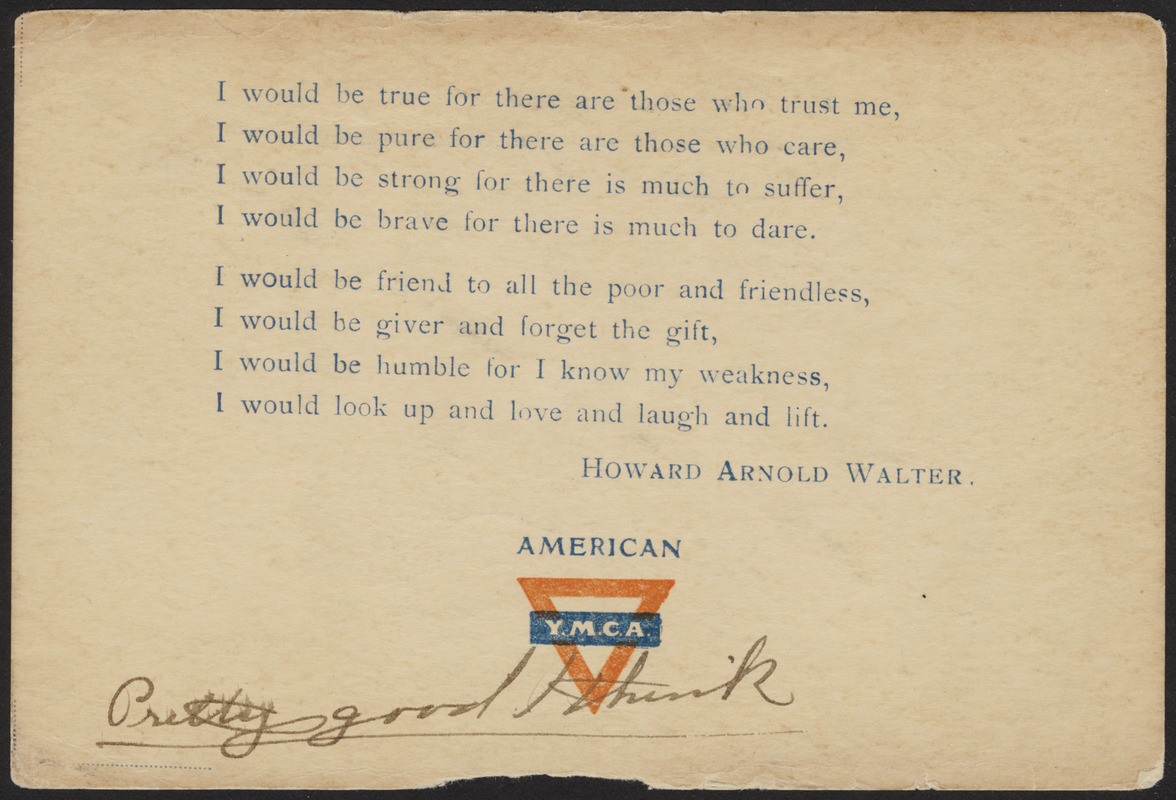 I would be true for there are those who trust me,
I would be pure for there are those who care,
I would be strong for there is much to suffer,
I would be brave for there is much to dare.
I would be friend to all the poor and friendless,
I would be giver and forget the gift,
I would be humble for I know my weakness,
I would look up and love and laugh and lift.
HOWARD ARNOLD WALTER.
AMERICAN
Y.M.C.A.
Pretty good I think